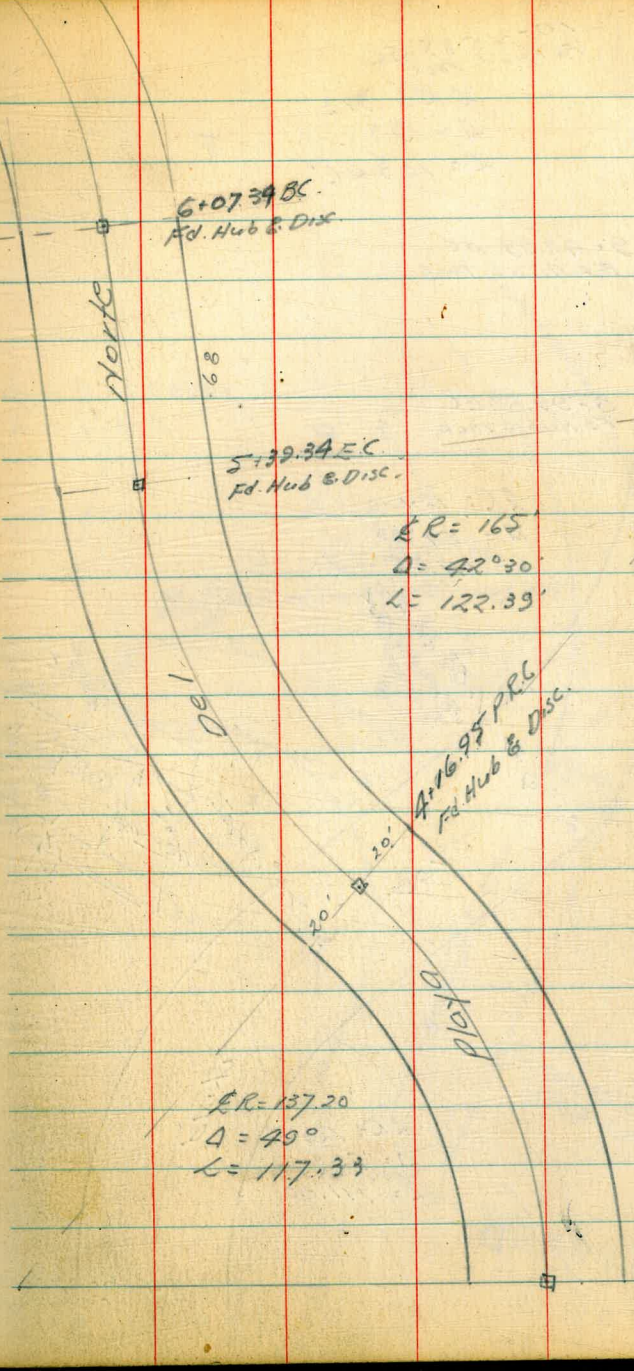 6+07.34 BC.
Fd. Hub & Disc.
Norte
68
5+39.34 E.C.
Fd. Hub & Disc.
℄ R = 165'
Δ = 42°30'
L = 122.39'
Del
4+16.95 P.R.C
Fd. Hub & Disc.
20'
20'
Playa
℄ R = 137.20
Δ = 49°
L = 117.33